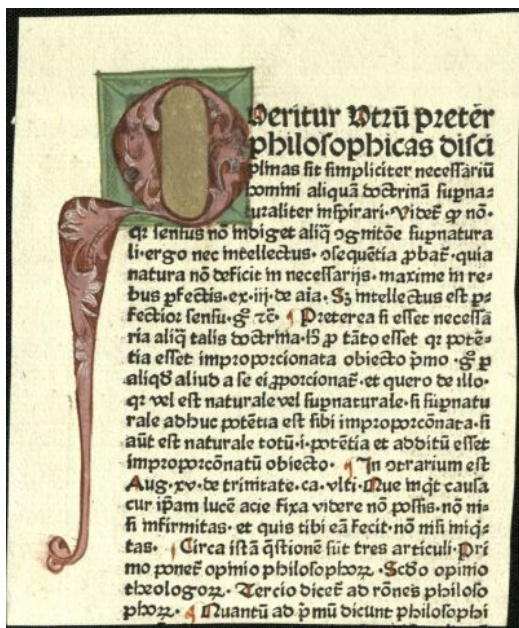 Queritur Utrũ preter̃
philosophicas disci
plinas sit simpliciter necessariũ
homini aliquã doctrinã supna-
turaliter inspirari. Videt̃ ꝙ nõ.
qr sensus nõ indiget aliq̃ ꝯgnitõe supnatura
li. ergo nec intellectus. ꝯsequẽtia ꝓbat̃. quia
natura nõ deficit in necessarijs. maxime in re-
bus ꝑfectis. ex. iij. de aĩa. Sꝫ intellectus est ꝑ-
fectior sensu. gͦ ⁊c̃. ¶ Preterea si esset necessã
ria aliq̃ talis doctrina. hͦ ꝓ tãto esset qr potẽ-
tia esset improporcionata obiecto pͥmo. gͦ ꝑ
aliqͩ aliud a se ei ꝓporcionat̃. et quero de illo.
qr vel est naturale vel supnaturale. si supnatu
rale adhuc potẽtia est sibi improporcõnata. si
aũt est naturale totũ. i. potẽtia et additũ esset
improporcõnatũ obiecto. ¶ In ꝯtrarium est
Aug. xv. de trinitate. ca. vlti. Que inq̃t causa
cur ip̃am lucẽ acie fixa videre nõ possis. nõ ni-
si infirmitas. et quis tibi eã fecit. nõ nisi iniq̃-
tas. ¶ Circa istã q̃stionẽ sũt tres articuli. Pri
mo ponet̃ opinio philosophoꝝ. Scd̃o opinio
theologoꝝ. Tercio dicet̃ ad rõnes philoso
phoꝝ. ¶ Quantũ ad pͥmũ dicunt philosophi